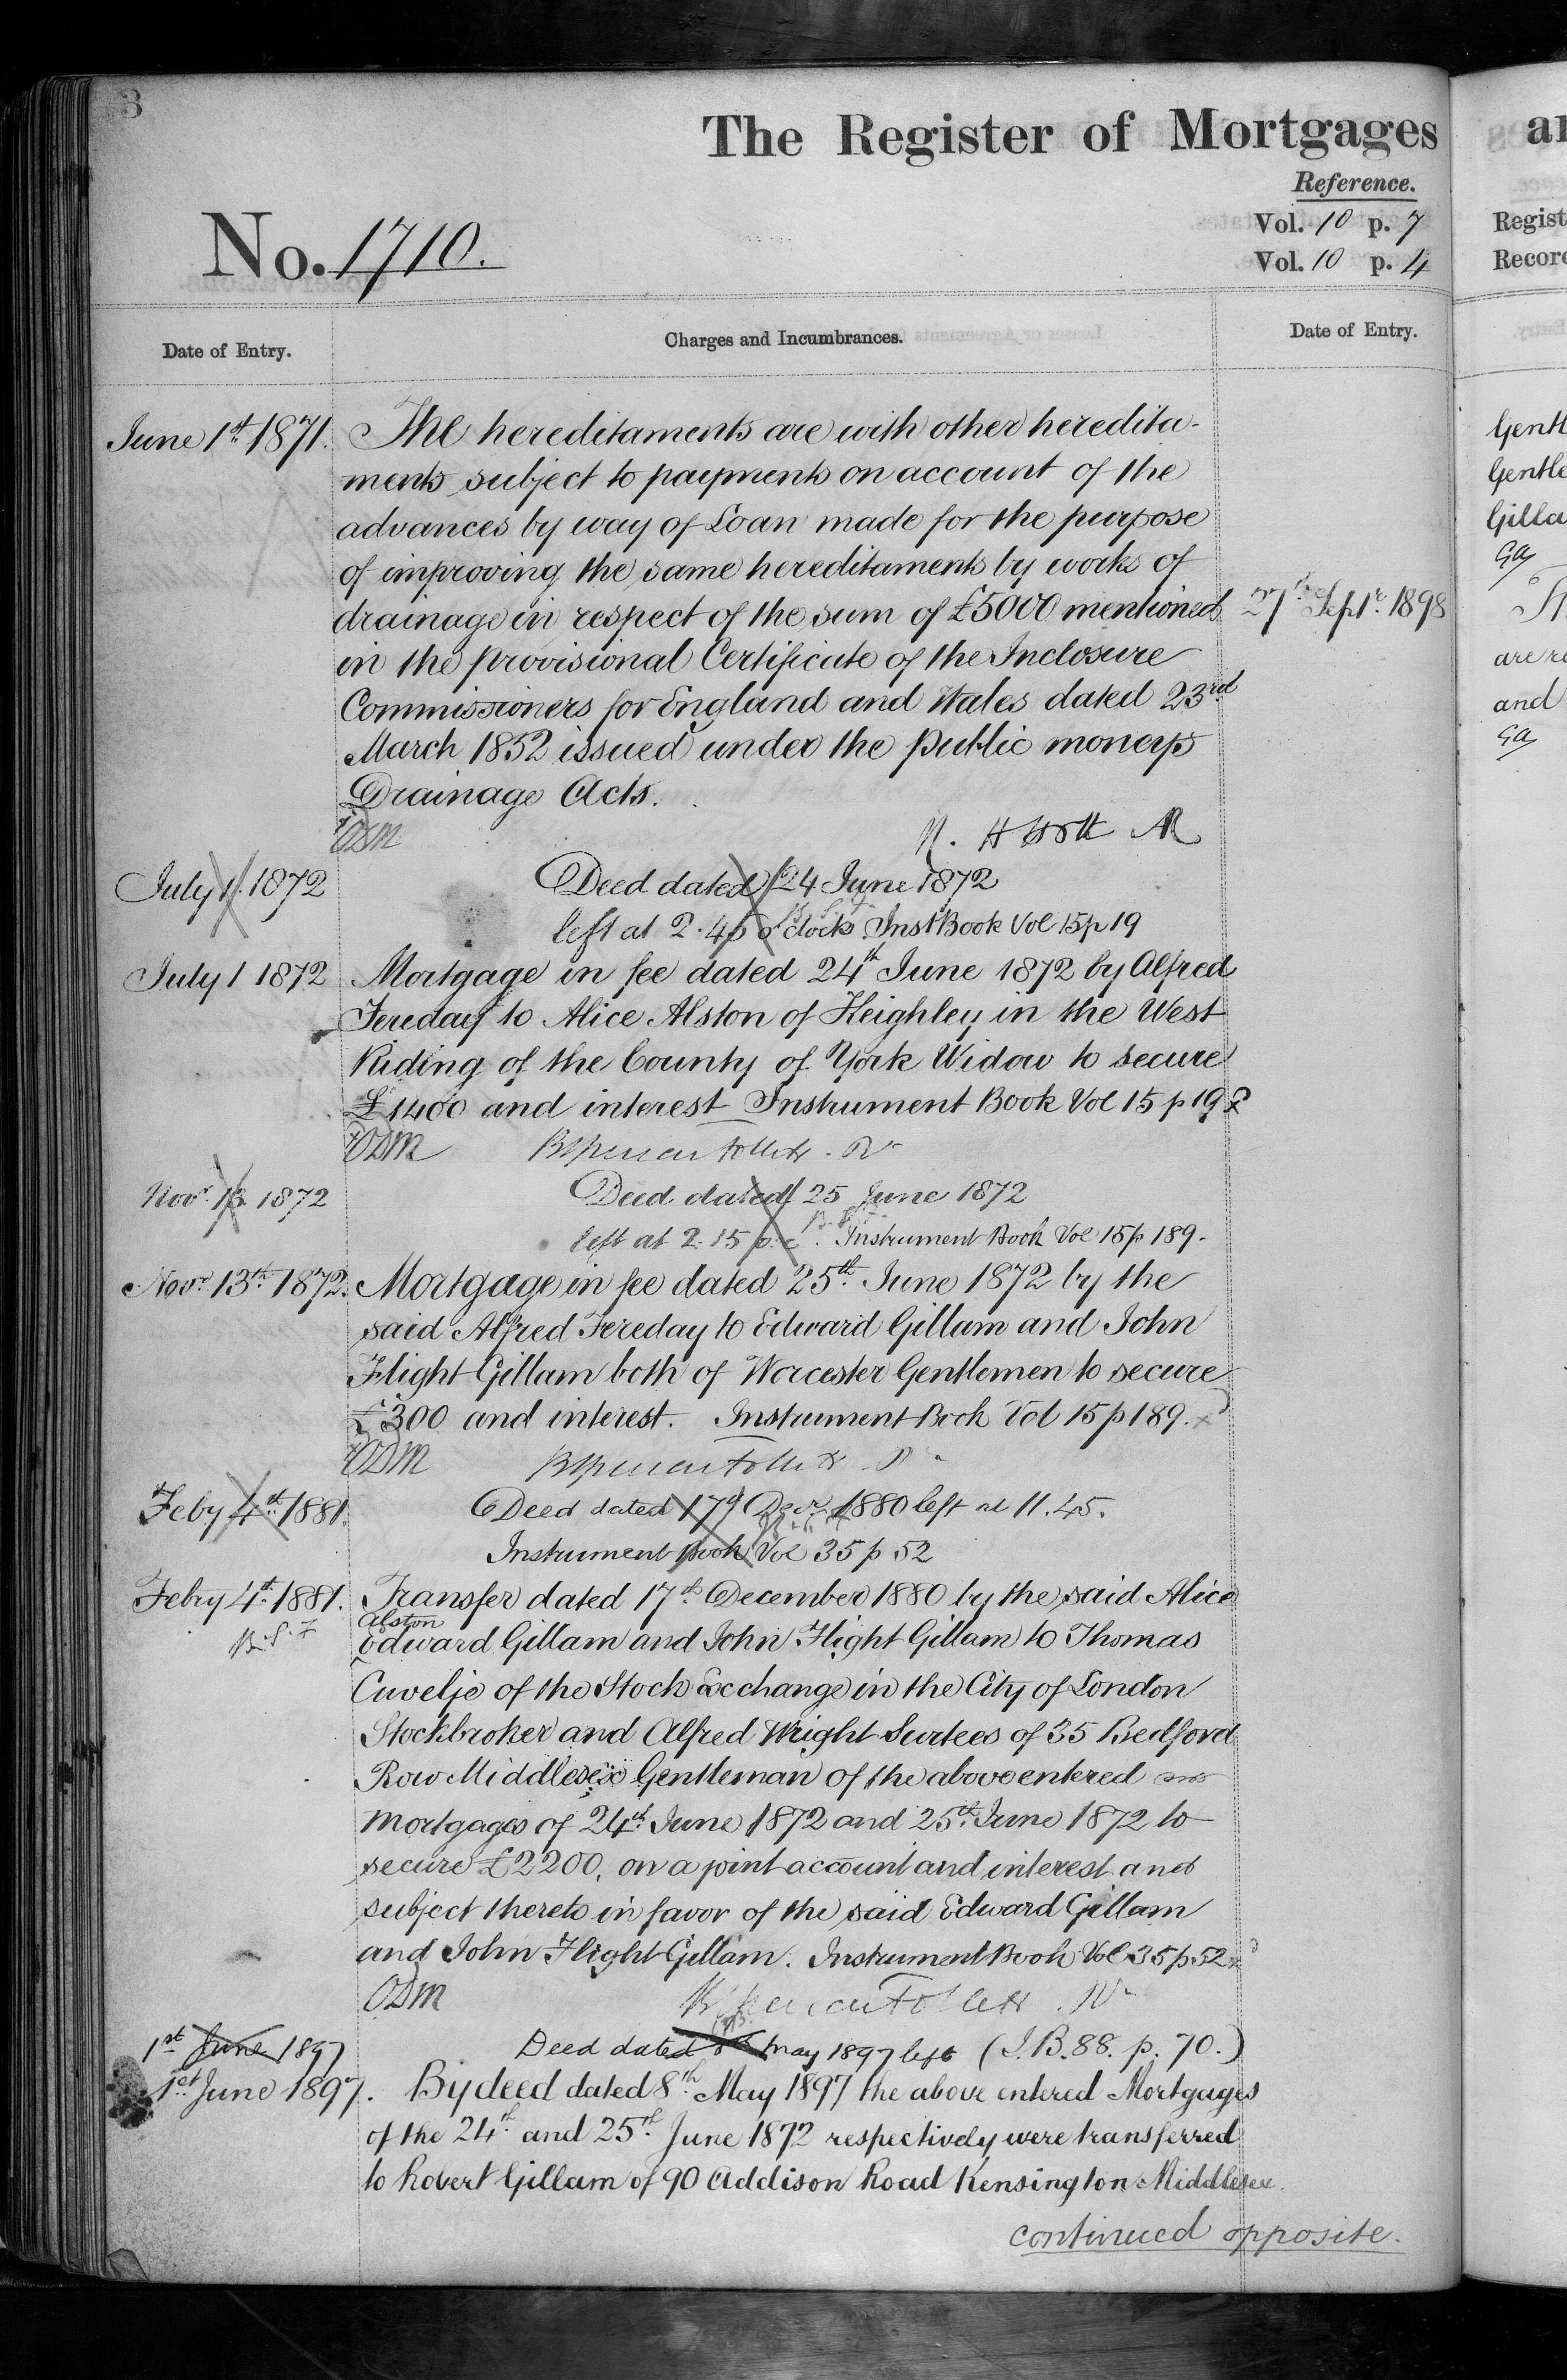 3
The Register of Mortgages
Reference.
Vol. 10 p. 7
No. 1710.
Vol. 10 p. 4
Date of Entry.
Charges and Incumbrances.
Date of Entry.
June 1st 1871. The hereditaments are with other heredita-
ments subject to payments on account of the
advances by way of Loan made for the purpose
of improving the same hereditaments by works of
drainage in respect of the sum of £5000 mentioned
27th Sepr 1898
in the provisional Certificate of the Inclosure
Commissioners for England and Wales dated 23rd
March 1852 issued under the public moneys
Drainage Acts.
ODM
July 1. 1872 Deed dated 24 June 1872
left at 2.45 o'clock Inst Book Vol 15 p 19
July 1 1872 Mortgage in fee dated 24th June 1872 by Alfred
Fereday to Alice Alston of Keighley in the West
Riding of the County of York Widow to secure
£1400 and interest Instrument Book Vol 15 p 19
ODM
Novr. 13 1872 Deed dated 25 June 1872
left at 2.15 Instrument Book Vol 15 p 189.
Novr. 13th 1872. Mortgage in fee dated 25th June 1872 by the
said Alfred Fereday to Edward Gillam and John
Flight Gillam both of Worcester Gentlemen to secure
£300 and interest. Instrument Book Vol 15 p 189.
ODM
Feby 4th 1881. Deed dated 17 Decr 1880 left at 11.45.
Instrument Book Vol 35 p 52
Febry 4th 1881. Transfer dated 17th December 1880 by the said Alice
Alston
B.S.F
Edward Gillam and John Flight Gillam to Thomas
Cuvelje of the Stock Exchange in the City of London
Stockbroker and Alfred Wright Surtees of 35 Bedford
Row Middlesex Gentleman of the above entered
Mortgages of 24th June 1872 and 25th June 1872 to
secure £2200, on a joint account and interest and
subject thereto in favor of the said Edward Gillam
and John Flight Gillam. Instrument Book Vol 35 p 52
ODM
1st June 1897 Deed dated 8th May 1897 left (I.B. 88. p. 70.)
1st June 1897. By deed dated 8th May 1897 the above entered Mortgages
of the 24th and 25th June 1872 respectively were transferred
to Robert Gillam of 90 Addison Road Kensington Middlesex.
continued opposite.
Regist
Record
Gentl
Gentle
Gilla
are re
and